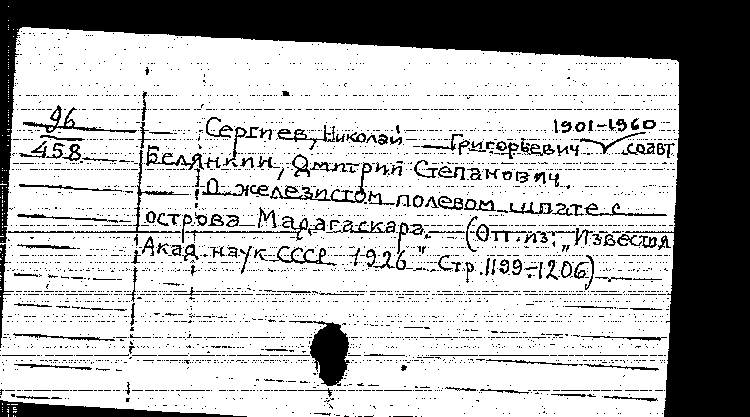 96
458
1901-1960
Сергиев, Николай Григорьевич соавт
Белянкин, Дмитрий Степанович.
О железистом полевом шпате с
острова Мадагаскара. (Отт. из: „Известия
Акад. наук СССР 1926" Стр. 1199-1206)